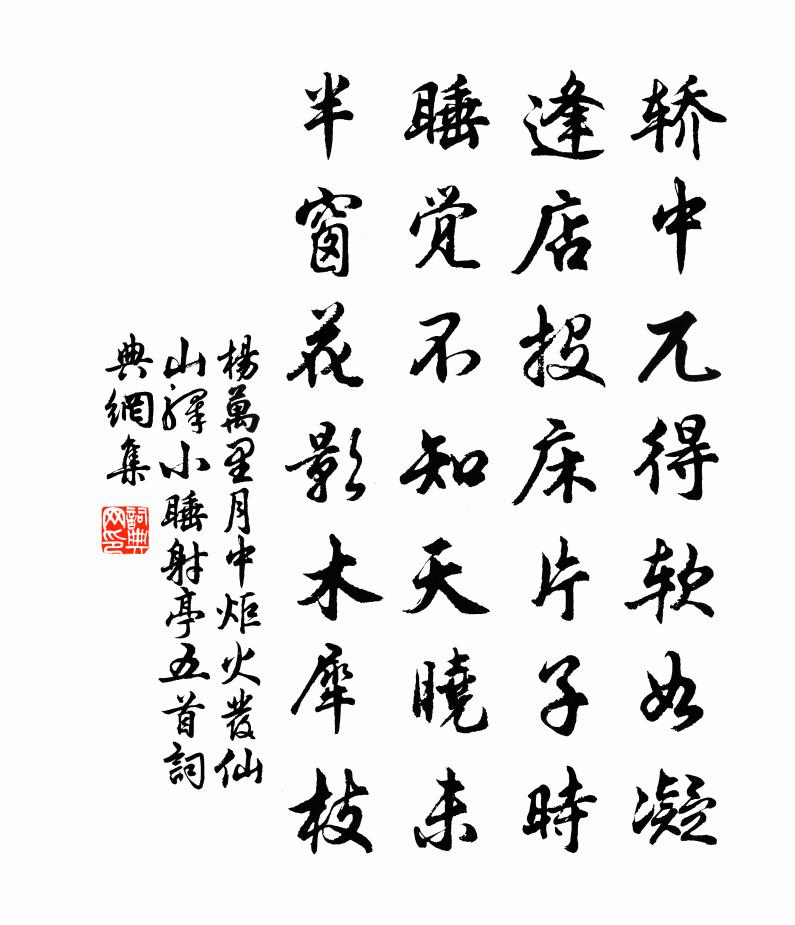 轿中兀得软如凝
逢店投床片子時
睡觉不知天曉未
半窗花影木犀枝
楊萬里月中炬火發仙
山驛小睡射亭五首詞
典網集
詞典网印